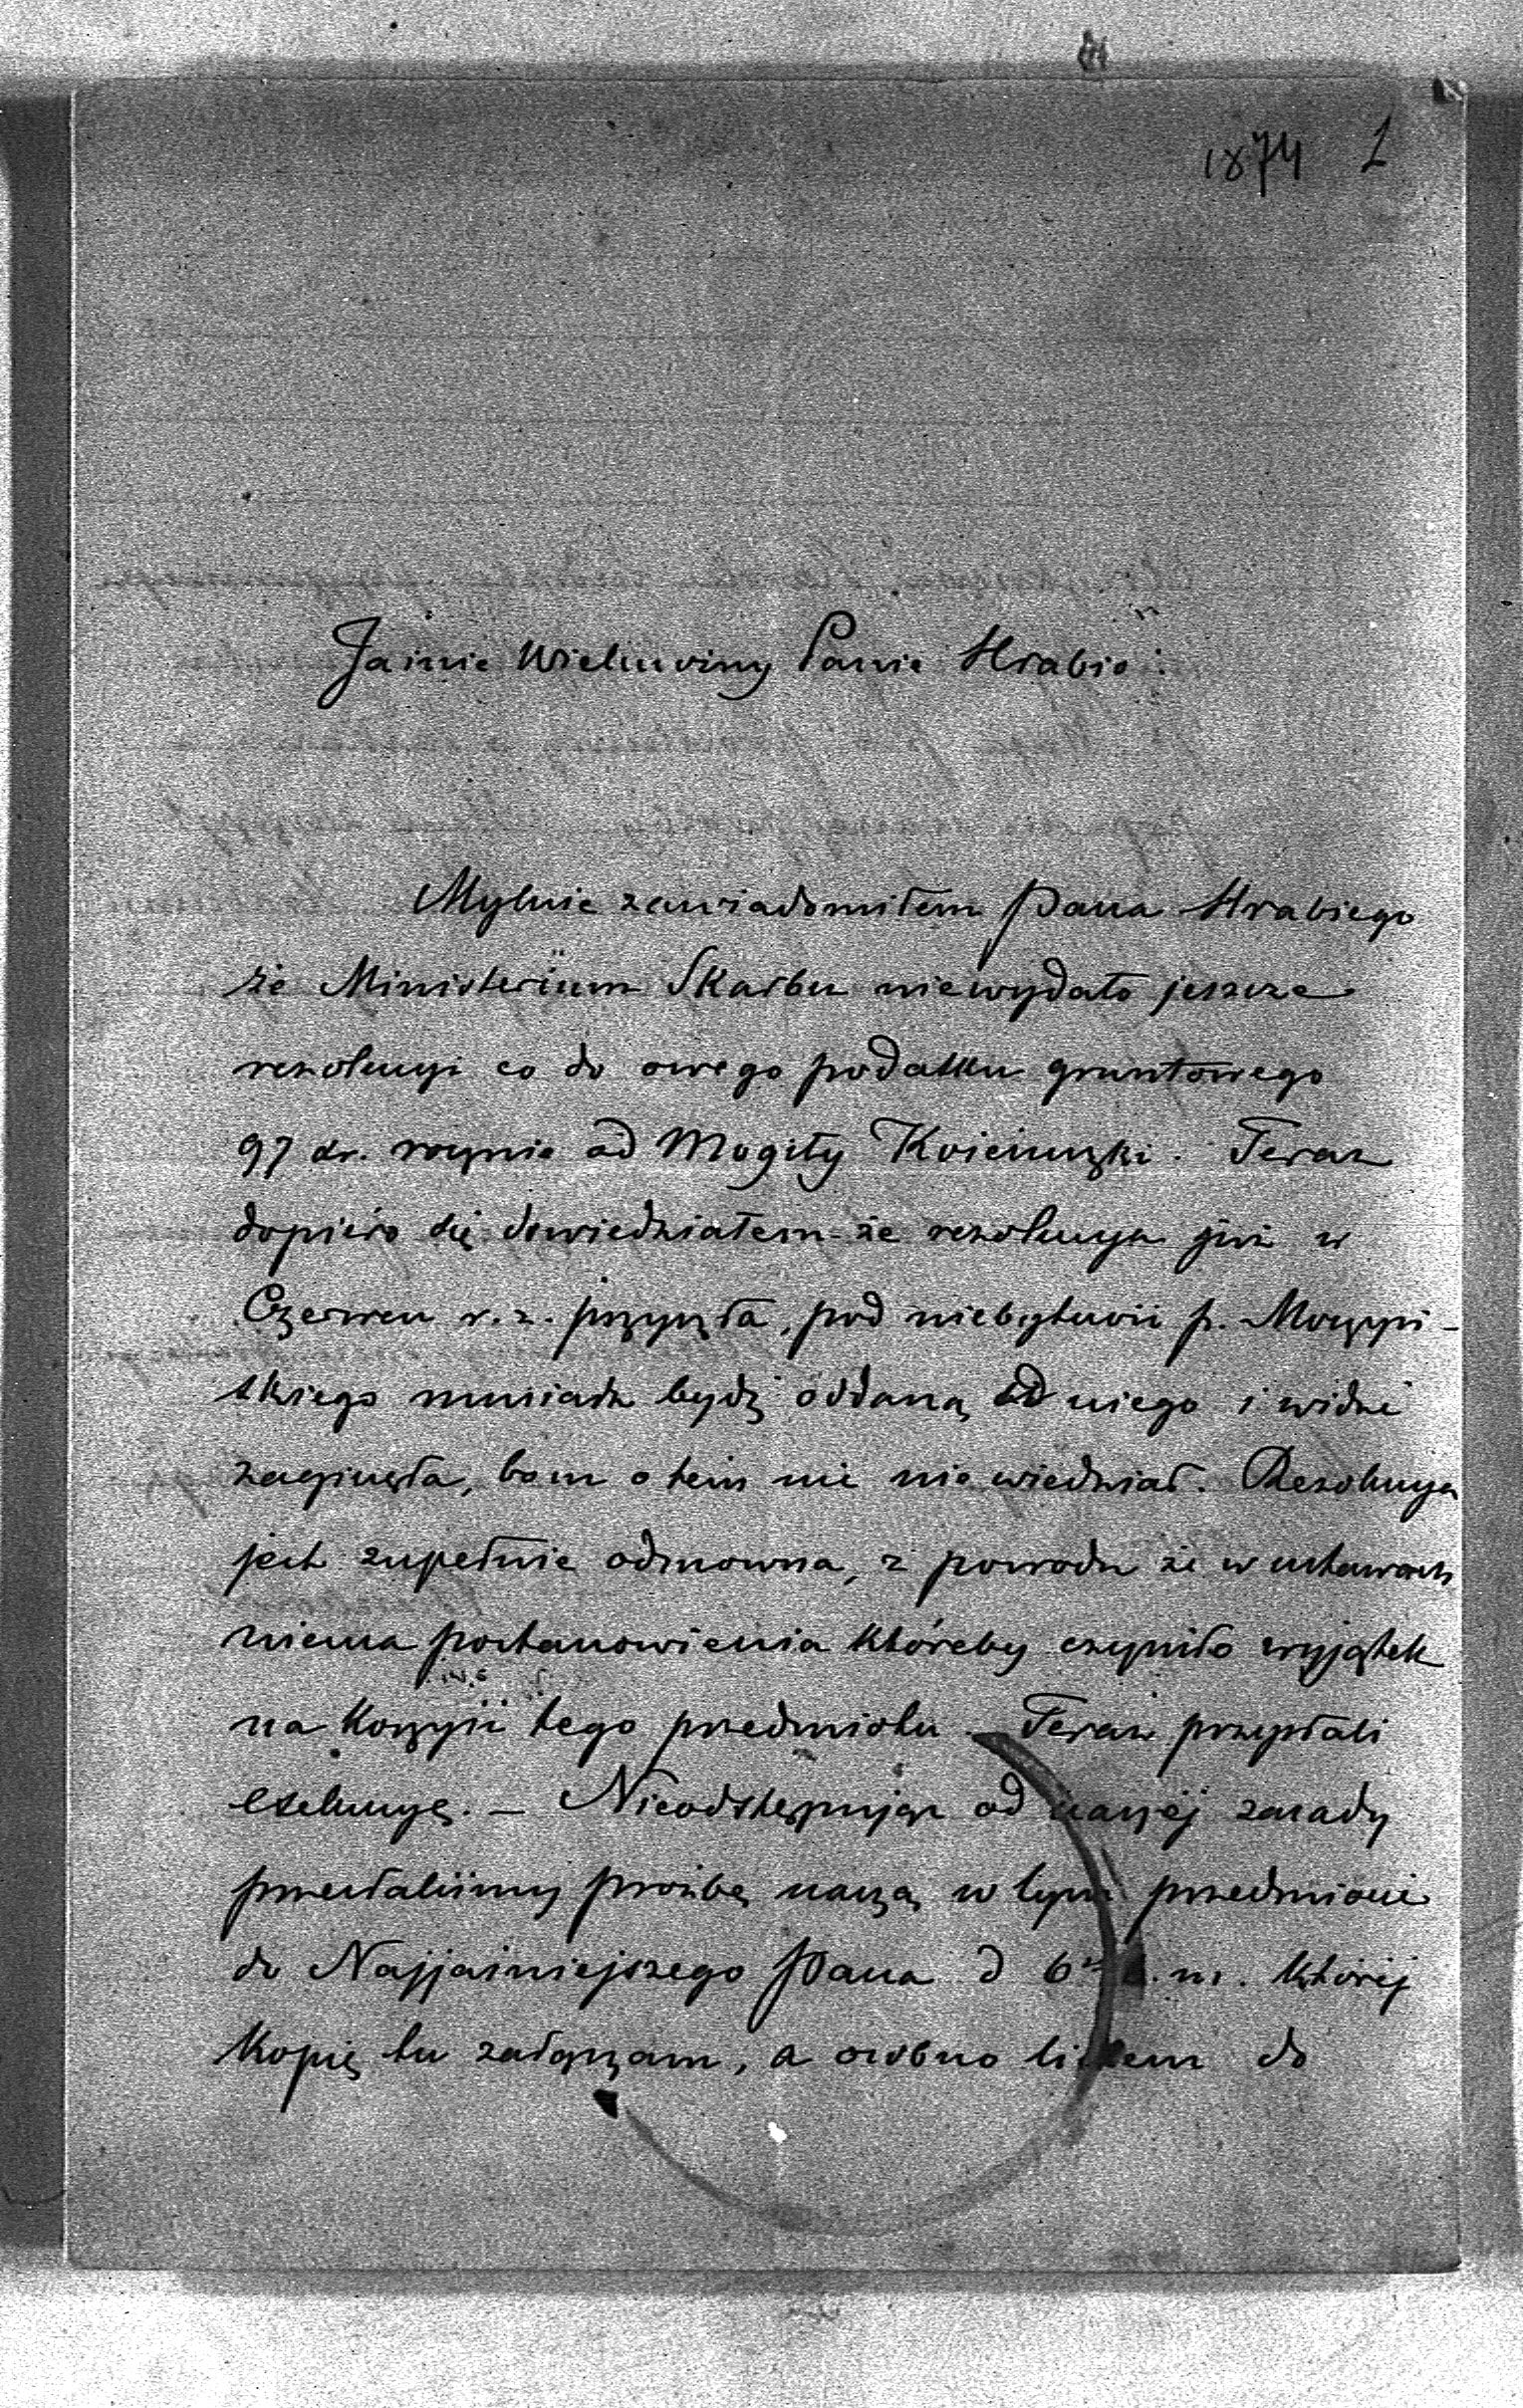 1874 1
Jaśnie Wielmożny Panie Hrabio:
Mylnie zawiadomiłem Pana Hrabiego
że Ministerium Skarbu niewydało jeszcze
rezolucyi co do owego podatku gruntowego
97 ct. rocznie od Mogiły Kościuszki. Teraz
dopiéro się dowiedziałem że rezolucya już w
Czerwcu r. z. przyszła, pod niebytność p.
skiego musiała bydź oddaną od niego i widać
zaginęła, bom o tem nic nie wiedział. Rezolucya
jest zupełnie odmowna, z powodu że w ustawach
niema postanowienia któreby czyniło wyjątek
na korzyść tego przedmiotu. Teraz przysłali
exekucyę. — Nieodstępując od naszéj zasady
przesłaliśmy prośbę naszą w tym przedmiocie
do Najjaśniejszego Pana d 6 b. m. któréj
kopię tu załączam, a osobno listem do